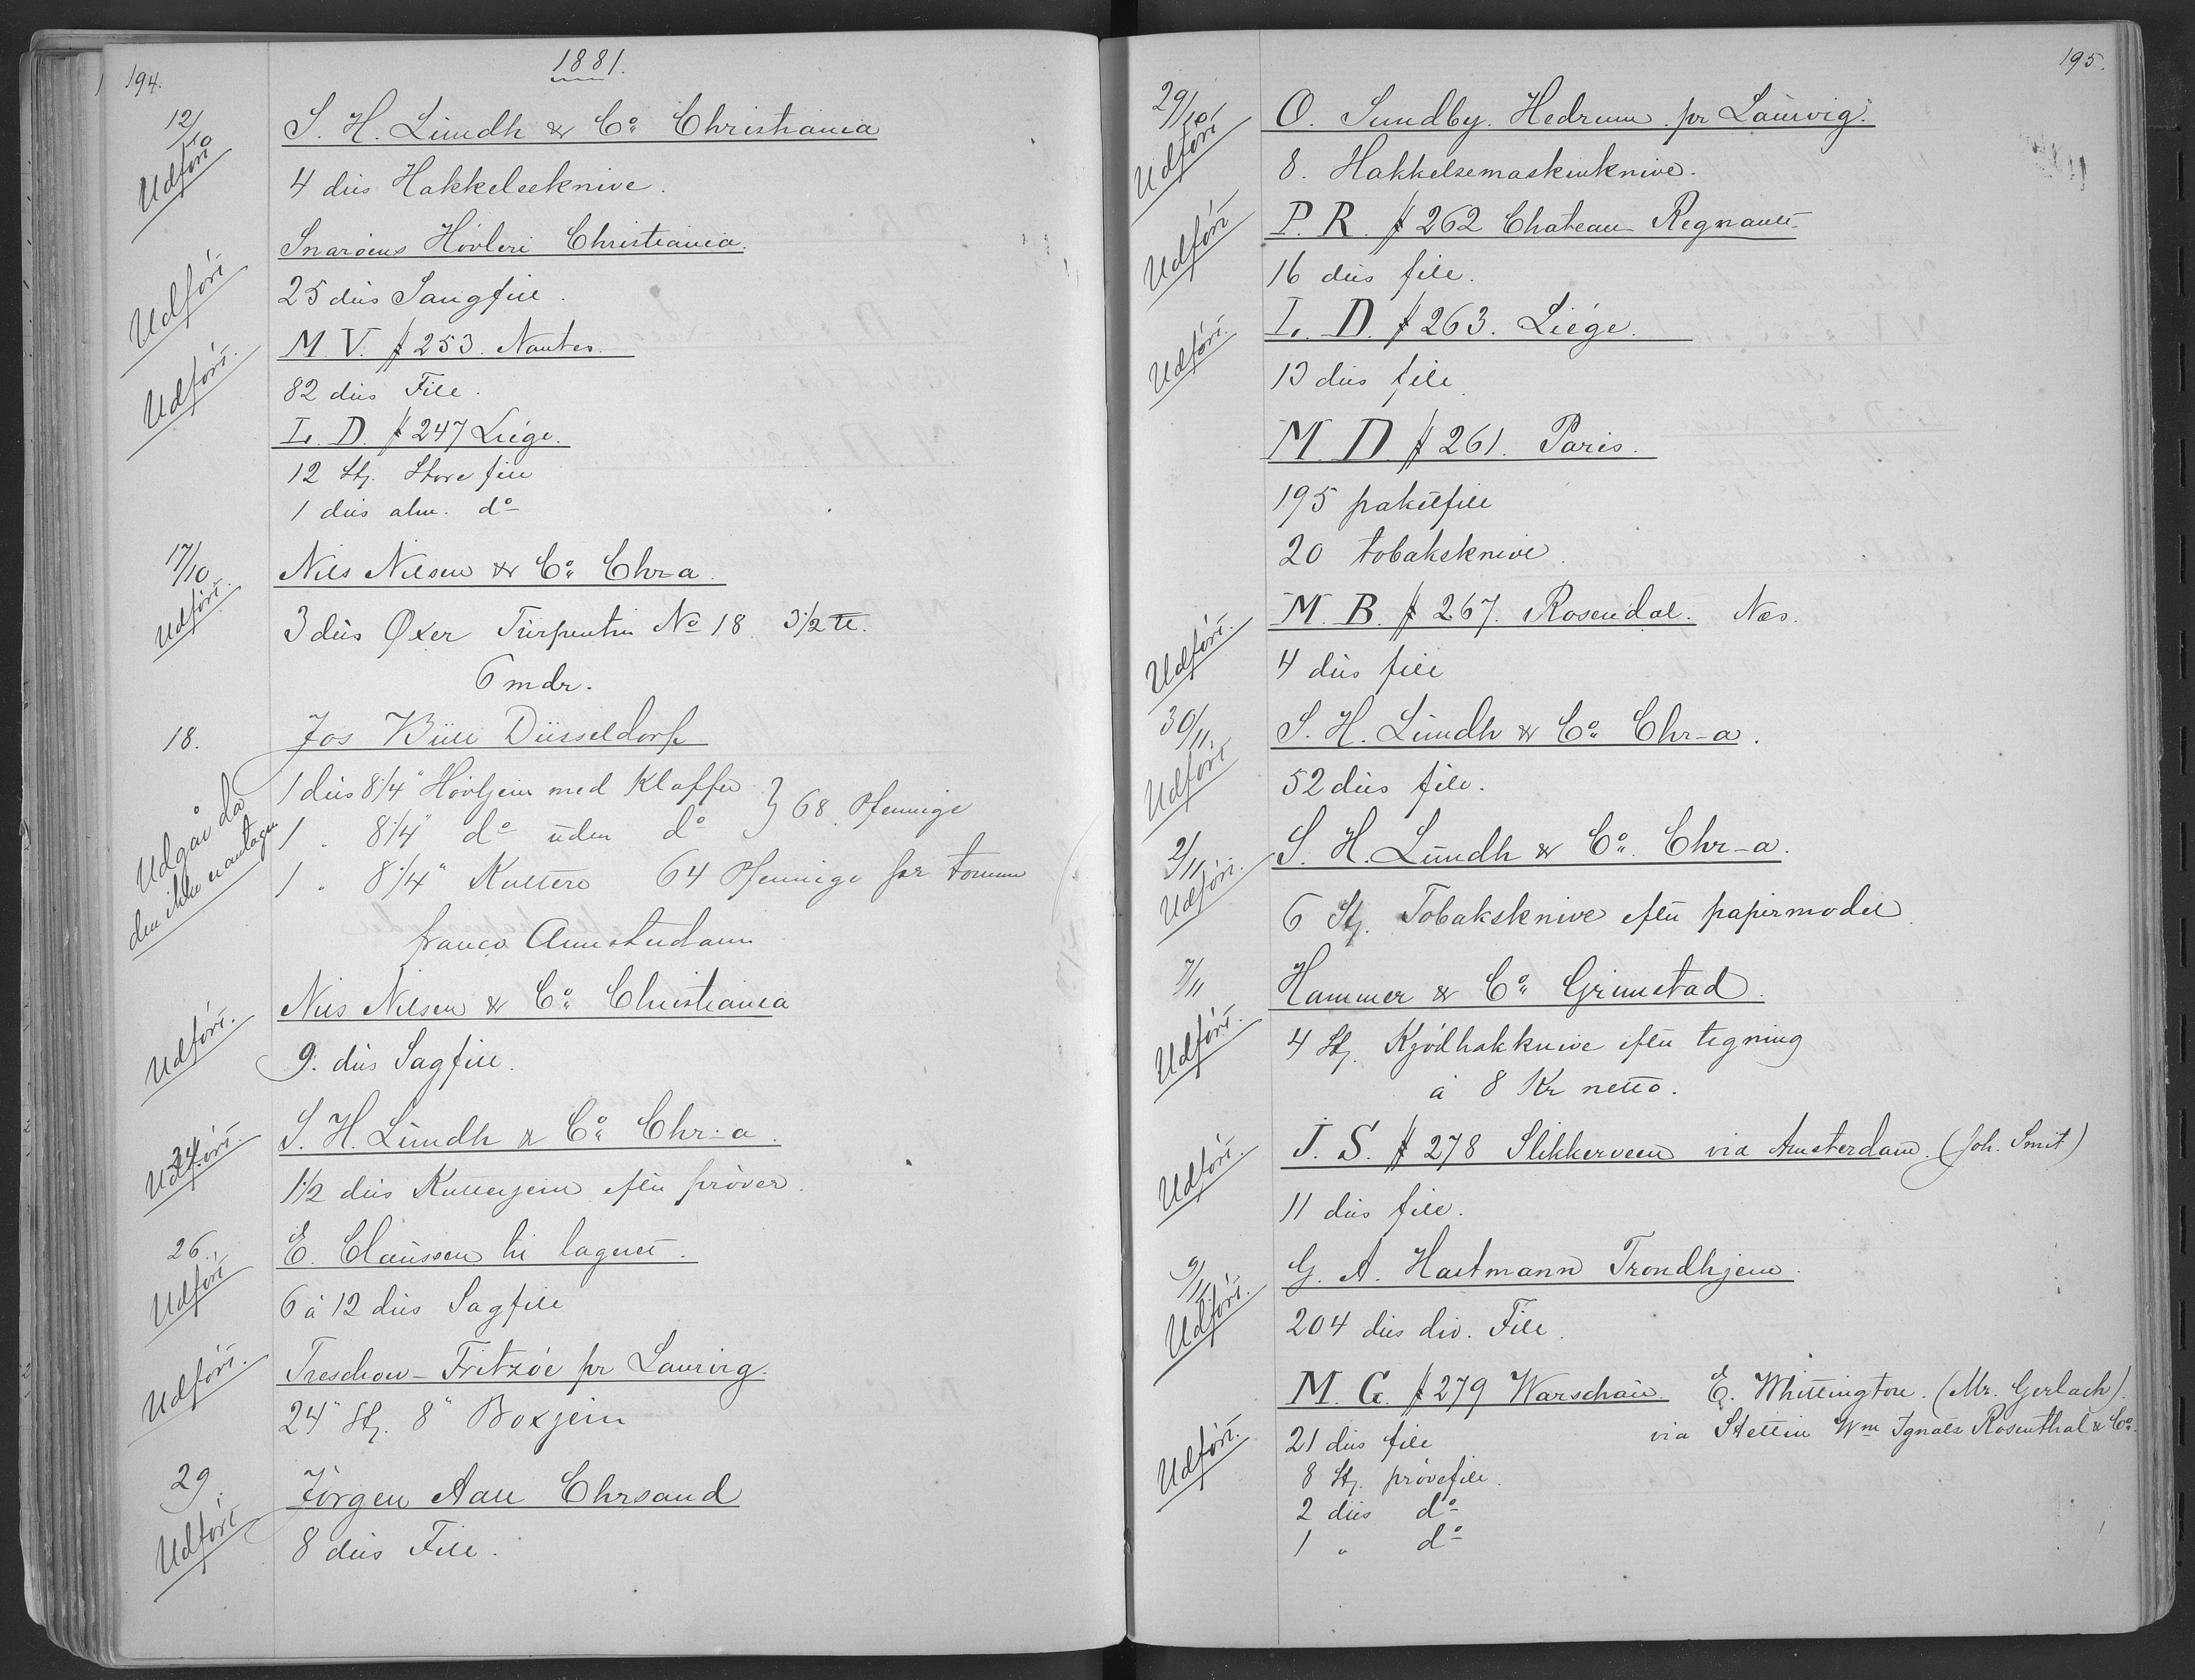 194.
1881.
12/10
Udført
S. H. Lundh & Co: Christiania
4 dus Hakkelseknive.
Udført
Snaröens Hövleri Christiania.
25 dus Saugfile.
Udført.
M. V. # 253. Nantes.
82 dus File.
L. D. # 247 Liége.
12 Stj. Store file
1 dus alm. do
17/10
Udført.
Nils Nilsen & Co: Chr-a.
3 dus Øxer Turpentin No 18 3 1/2 ℔.
6 mdr.
18.
Jos Büll Düsseldorf
Udgår da
den ikke er antagen
1 dus 8 1/4" Hövljern med Klaffer } 68 Pfennige
1 " 8 1/4" do uden do
1 " 8 1/4" Kuttere 64 Pfennige per tomme
franco Amsterdam
Udført.
Nils Nilsen & Co: Christiania
9. dus Sagfile.
24.
Udført.
S. H. Lundh & Co: Chr-a.
1 1/2 dus Kutterjern efter prøver.
26.
Udført
E. Claussen til lageret.
6 à 12 dus Sagfile
Udført.
Treschow-Fritzöe pr Laurvig.
24" Stj. 8" Boxjern
29.
Udført
Jörgen Aall Chrsand
8 dus File.
195.
29/10
Udført
O. Sundby. Hedrum. pr Laurvig.
8. Hakkelsemaskinknive.
Udført
P. R. # 262 Chateau-Regnault
16 dus file.
Udført.
L. D. # 263. Liége.
13 dus file
M. D. # 261. Paris.
195 paketfile
20 tobaksknive.
Udført.
M. B. # 267. Rosendal. Næs.
4 dus file
30/11.
Udført
S. H. Lundh & Co: Chr-a.
52 dus file.
2/11
Udført.
S. H. Lundh & Co: Chr-a.
6 Stj. Tobaksknive efter papirmodel.
7/11
Udført.
Hammer & Co: Grimstad.
4 Stj. Kjödhakknive efter tegning
à 8 Kr netto.
Udført.
J. S. # 278 Slikkerveen via Amsterdam. (Joh. Smit)
11 dus file.
9/11.
Udført.
G. A. Hartmann Trondhjem.
204 dus div. File.
Udført.
M. G. # 279 Warschau. E. Whittington. (Mr. Gerlach).
via Stettin Wm Ignatz Rosenthal & Co.
21 dus file
8 Stj. prøvefile.
2 dus do
1 " do